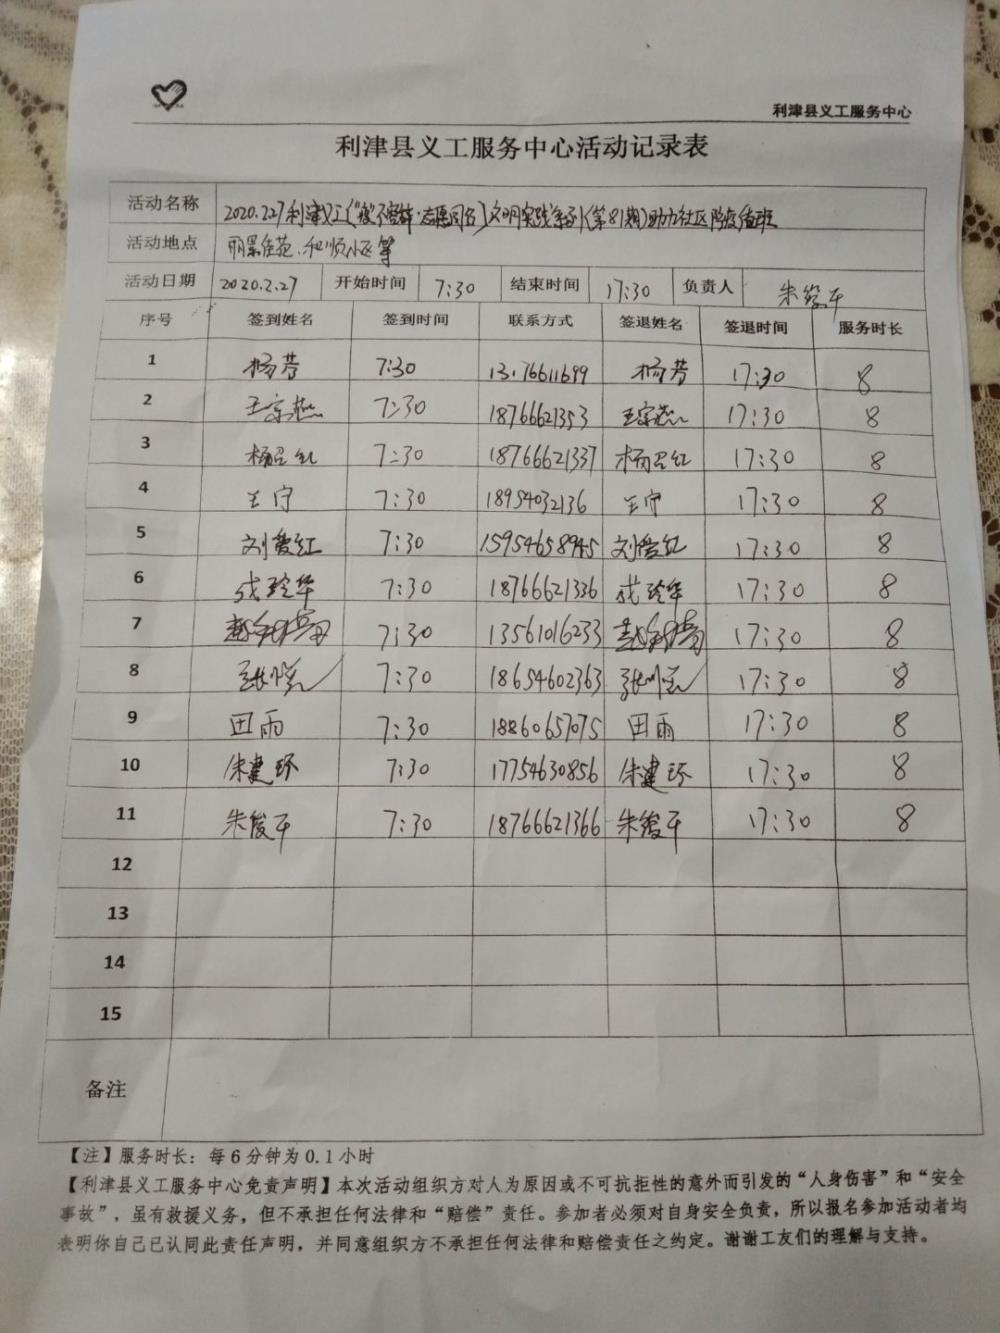 利津县义工服务中心
利津县义工服务中心活动记录表
活动名称 2020.2.27利津义工("疫"不容辞·志愿同名)文明实践系列(第81期)助力社区防疫值班
活动地点 丽景佳苑、和顺小区等
活动日期 2020.2.27 开始时间 7:30 结束时间 17:30 负责人 朱俊平
序号 签到姓名 签到时间 联系方式 签退姓名 签退时间 服务时长
1 杨芳 7:30 杨芳 17:30 8
2 王宗燕 7:30 18766621353 王宗燕 17:30 8
3 杨召红 7:30 18766621337 杨召红 17:30 8
4 王宁 7:30 18954032136 王宁 17:30 8
5 刘爱红 7:30 15954658945 刘爱红 17:30 8
6 成玲华 7:30 18766621336 成玲华 17:30 8
7 7:30 13561016233 17:30 8
8 7:30 18654602363 17:30 8
9 田雨 7:30 18860657075 田雨 17:30 8
10 朱建环 7:30 17754630856 朱建环 17:30 8
11 朱俊平 7:30 18766621366 朱俊平 17:30 8
12
13
14
15
备注
【注】服务时长：每6分钟为0.1小时
【利津县义工服务中心免责声明】本次活动组织方对人为原因或不可抗拒性的意外而引发的“人身伤害”和“安全
事故”，虽有救援义务，但不承担任何法律和“赔偿”责任。参加者必须对自身安全负责，所以报名参加活动者均
表明你自己已认同此责任声明，并同意组织方不承担任何法律和赔偿责任之约定。谢谢工友们的理解与支持。